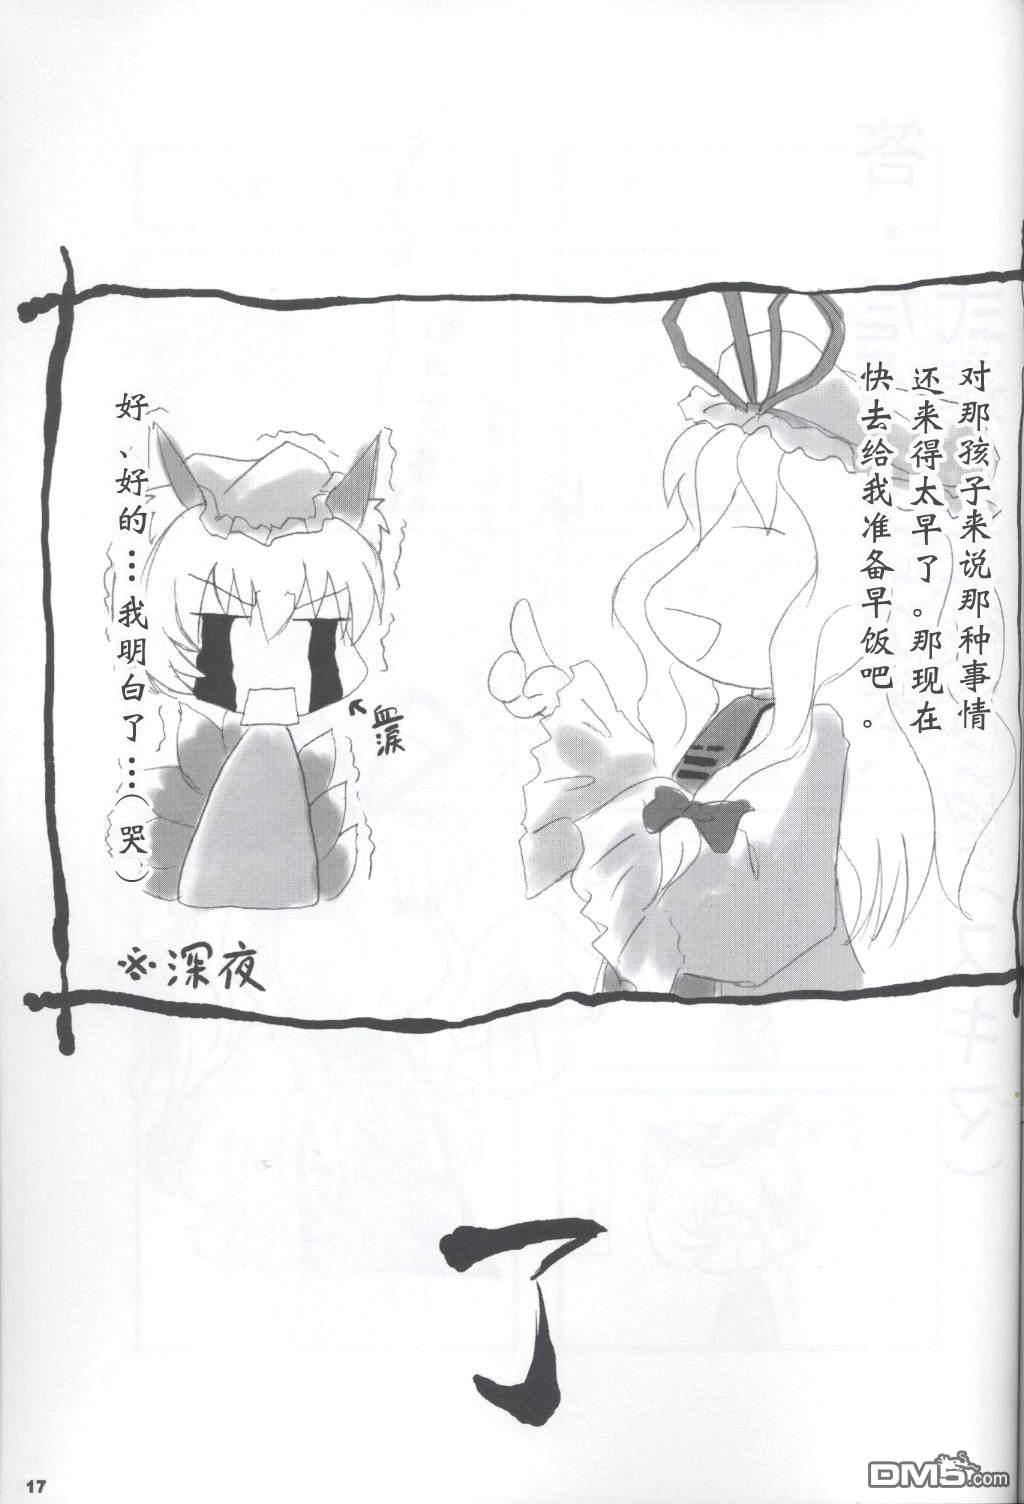 对那孩子来说那种事情
还来得太早了。那现在
快去给我准备早饭吧。
好、好的…我明白了…（哭）
血涙
※深夜
了
17
DM5.com